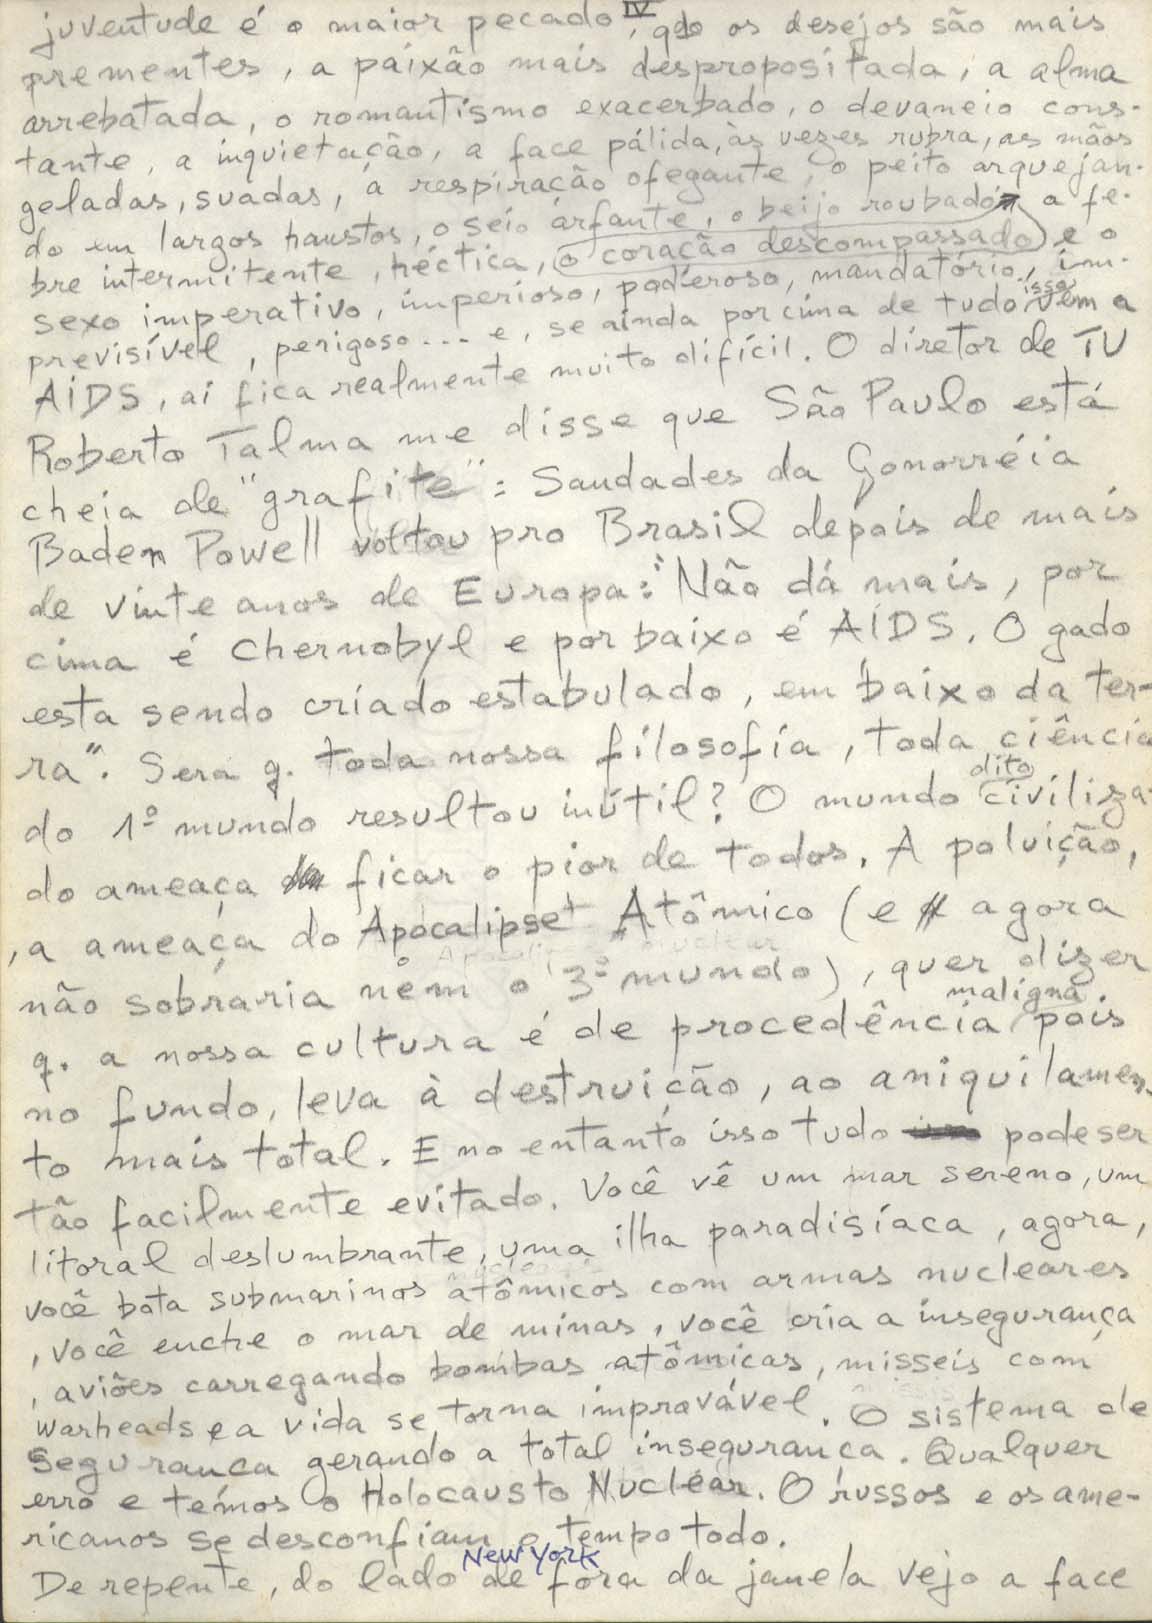 IV
juventude é o maior pecado, qdo os desejos são mais
prementes, a paixão mais despropositada, a alma
arrebatada, o romantismo exacerbado, o devaneio cons-
tante, a inquietação, a face pálida, às vezes rubra, as mãos
geladas, suadas, a respiração ofegante, o peito arquejan-
do em largos haustos, o seio arfante, o beijo roubado, a fe-
bre intermitente, héctica, o coração descompassado e o
sexo imperativo, imperioso, poderoso, mandatório, im-
previsível, perigoso... e, se ainda por cima de tudo isso vem a
AIDS, aí fica realmente muito difícil. O diretor de TV
Roberto Talma me disse que São Paulo está
cheia de "grafite": Saudades da Gonorréia
Baden Powell voltou pro Brasil depois de mais
de vinte anos de Europa: "Não dá mais, por
cima é Chernobyl e por baixo é AIDS. O gado
esta sendo criado estabulado, em baixo da ter-
ra". Sera q. toda nossa filosofia, toda ciência
do 1º mundo resultou inútil? O mundo dito civiliza-
do ameaça ficar o pior de todos. A poluição,
, a ameaça do Apocalipse Atômico (e agora
não sobraria nem o 3º mundo), quer dizer
q. a nossa cultura é de procedência maligna, pois
no fundo, leva à destruição, ao aniquilamen-
to mais total. E no entanto isso tudo pode ser
tão facilmente evitado. Você vê um mar sereno, um
litoral deslumbrante, uma ilha paradisíaca, agora,
você bota submarinos atômicos com armas nucleares
, você enche o mar de minas, você cria a insegurança
, aviões carregando bombas atômicas, misseis com
warheads e a vida se torna improvável. O sistema de
segurança gerando a total insegurança. Qualquer
erro e temos o Holocausto Nuclear. O russos e os ame-
ricanos se desconfiam o tempo todo.
New York
De repente, do lado de fora da janela vejo a face